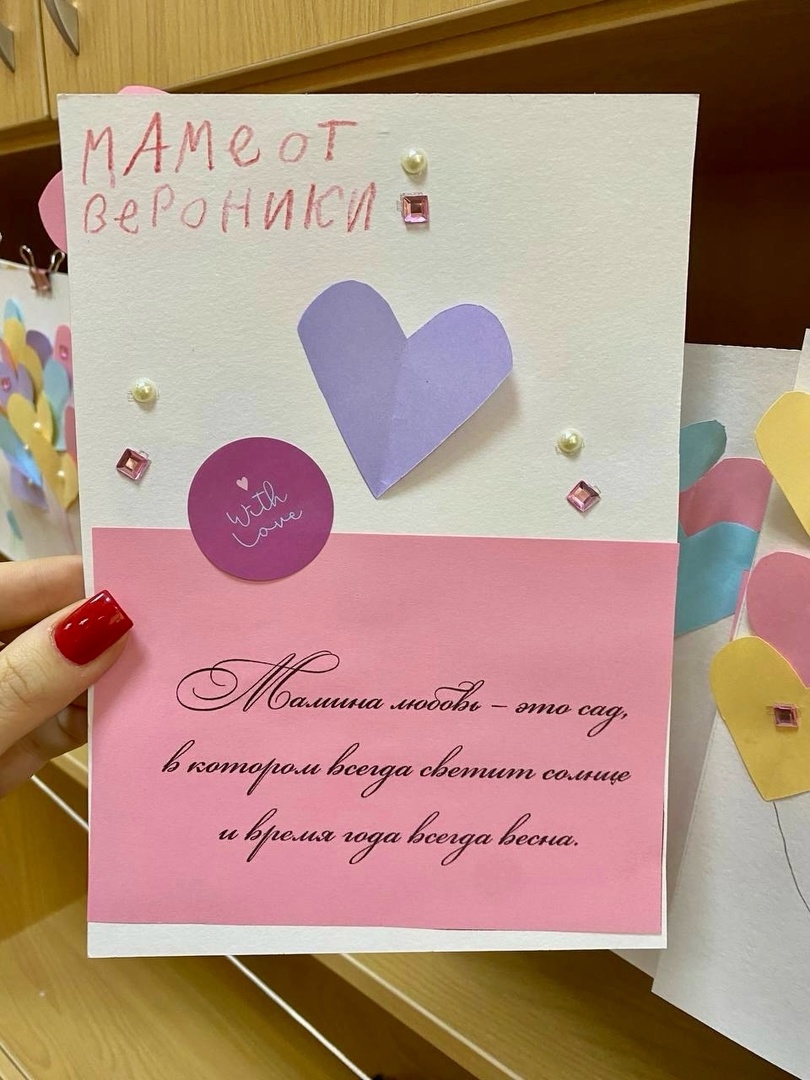 МАМе оТ
ВеРОНИКИ
With
Love
Мамина любовь – это сад,
в котором всегда светит солнце
и время года всегда весна.